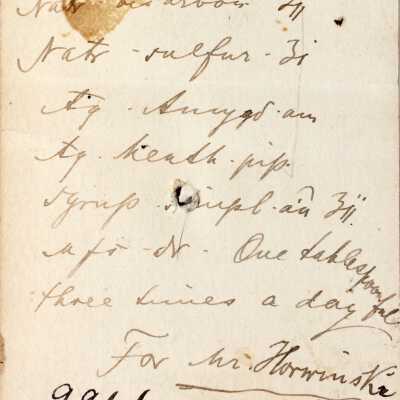 Natr bicarbon ʒij
Natr - sulfur - ʒi
Aq. Amygd. am
Aq. Menth. pip.
Syrup. simpl. aā ʒij.
Mfs - dr - One tablespoonful
three times a day
For Mr. Horwinski